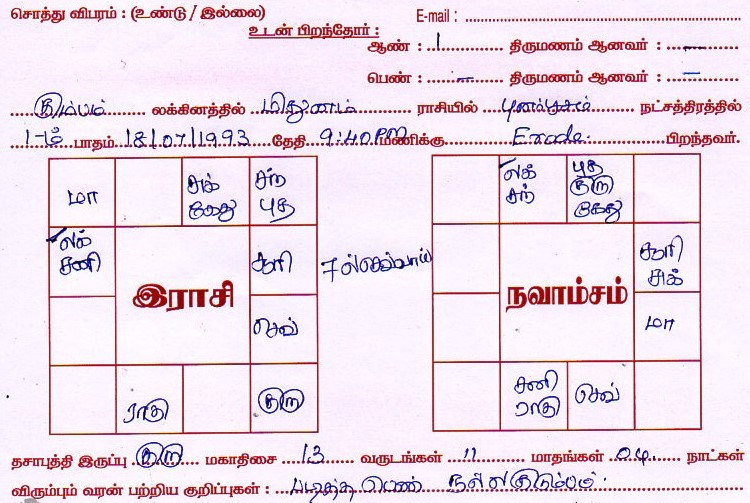 சொத்து விபரம் : (உண்டு / இல்லை) E-mail :
உடன் பிறந்தோர் :
ஆண் : 1 திருமணம் ஆனவர் : —
பெண் : – திருமணம் ஆனவர் : –
கும்பம் லக்கினத்தில் மிதுனம் ராசியில் புனர்பூசம் நட்சத்திரத்தில்
1-ம் பாதம் 18/07/1993 தேதி 9:40 PM மணிக்கு Erode. பிறந்தவர்.
மா சுக் கேது சந் புத
லக் சந் புத குரு கேது
லக் சனி சூரி 7ல் செவ்வாய் சூரி சுக்
இராசி நவாம்சம்
செவ் மா
ராகு குரு
சனி ராகு செவ்
தசாபுத்தி இருப்பு குரு மகாதிசை 13 வருடங்கள் 11 மாதங்கள் 04 நாட்கள்
விரும்பும் வரன் பற்றிய குறிப்புகள் : படித்த பெண் நல்ல குடும்பம்.